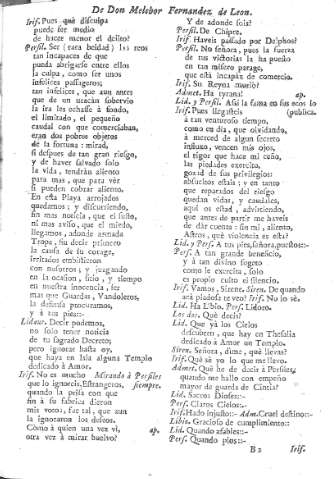 De Don Melchor Fernandez de Leon.
Irif. Pues qué disculpa
puede ser medio
de hacer menor el delito?
Persil. Ser (rara beldad) los reos
tan incapaces de que
pueda abrigarse entre ellos
la culpa, como ser unos
infelices passageros,
tan infelices, que aun antes
que de un uracán sobervio
la ira les echasse à fondo,
el limitado, el pequeño
caudal con que comerciaban,
eran dos pobres objetos
de la fortuna: mirad,
si despues de tan gran riesgo,
y de haver salvado solo
la vida, tendrán aliento
para mas, que para vér
si pueden cobrar aliento.
En esta Playa arrojados
quedamos; y discurriendo,
sin mas noticia, que el susto,
ni mas aviso, que el miedo,
llegamos, adonde armada
Tropa, sin decir primero
la causa de su corage,
irritados embistieron
con nosotros; y juzgando
en la ocasion, sitio, y tiempo
en nuestra inocencia, ser
mas que Guardas, Vandoleros,
la defensa procuramos,
y à tus pies::-
Lidoro. Decir podemos,
no solo tener noticia
de tu sagrado Decreto;
pero ignorar hasta oy,
que haya en Isla alguna Templo
dedicado à Amor.
Irif. No es mucho Mirando à Persiles
que lo ignoreis, Estrangeros, siempre.
quando la prisa con que
fin à su fabrica dieron
mis votos, fue tal, que aun
la ignoraron los deseos.
Cómo à quien una vez vi, ap.
otra vez à mirar buelvo?
Y de adonde sois?
Persil. De Chipre.
Irif. Haveis passado por Delphos?
Persil. No señora, pues la fuerza
de tus victorias la ha puesto
en tan misero parage,
que està incapáz de comercio.
Irif. Su Reyna murió?
Admet. Ha tyrana! ap.
Lid. y Persil. Assi la fama en sus ecos lo
Irif. Pues llegasteis (publica.
à tan venturoso tiempo,
como en dia, que olvidando,
à merced de algun secreto
influxo, vencen mis ojos,
el rigor que hace mi ceño,
las piedades exercito,
gozad de sus privilegios:
absueltos estais; y en tanto
que reparados del riesgo
quedan vidas, y caudales,
aqui os estad, advirtiendo,
que antes de partir me haveis
de dár cuenta: sin mi, aliento,
Astros, qué violencia es esta?
Lid. y Pers. A tus pies, señora, puestos::-
Pers. A tan grande beneficio,
y à tan divino sugeto
como le exercita, solo
es propio culto el silencio.
Irif. Vamos, Sirene. Siren. De quando
acà piadosa te veo? Irif. No lo sé.
Lid. Ha Libio. Pers. Lidoro.
Los dos. Qué decis?
Lid. Que yà los Cielos
descubren, que hay en Thesalia
dedicado à Amor un Templo.
Siren. Señora, dime, qué llevas?
Irif. Qué sé yo lo que me llevo.
Admet. Qué he de decir à Persiles,
quando me hallo con empeño
mayor de guarda de Cintia?
Lid. Sacros Dioses:-
Pers. Claros Cielos:-
Irif. Hado injusto::- Adm. Cruel destino::-
Libio. Gracioso de cumplimiento::-
Lid. Quando afables::-
Pers. Quando pios::-
B 2 Irif.